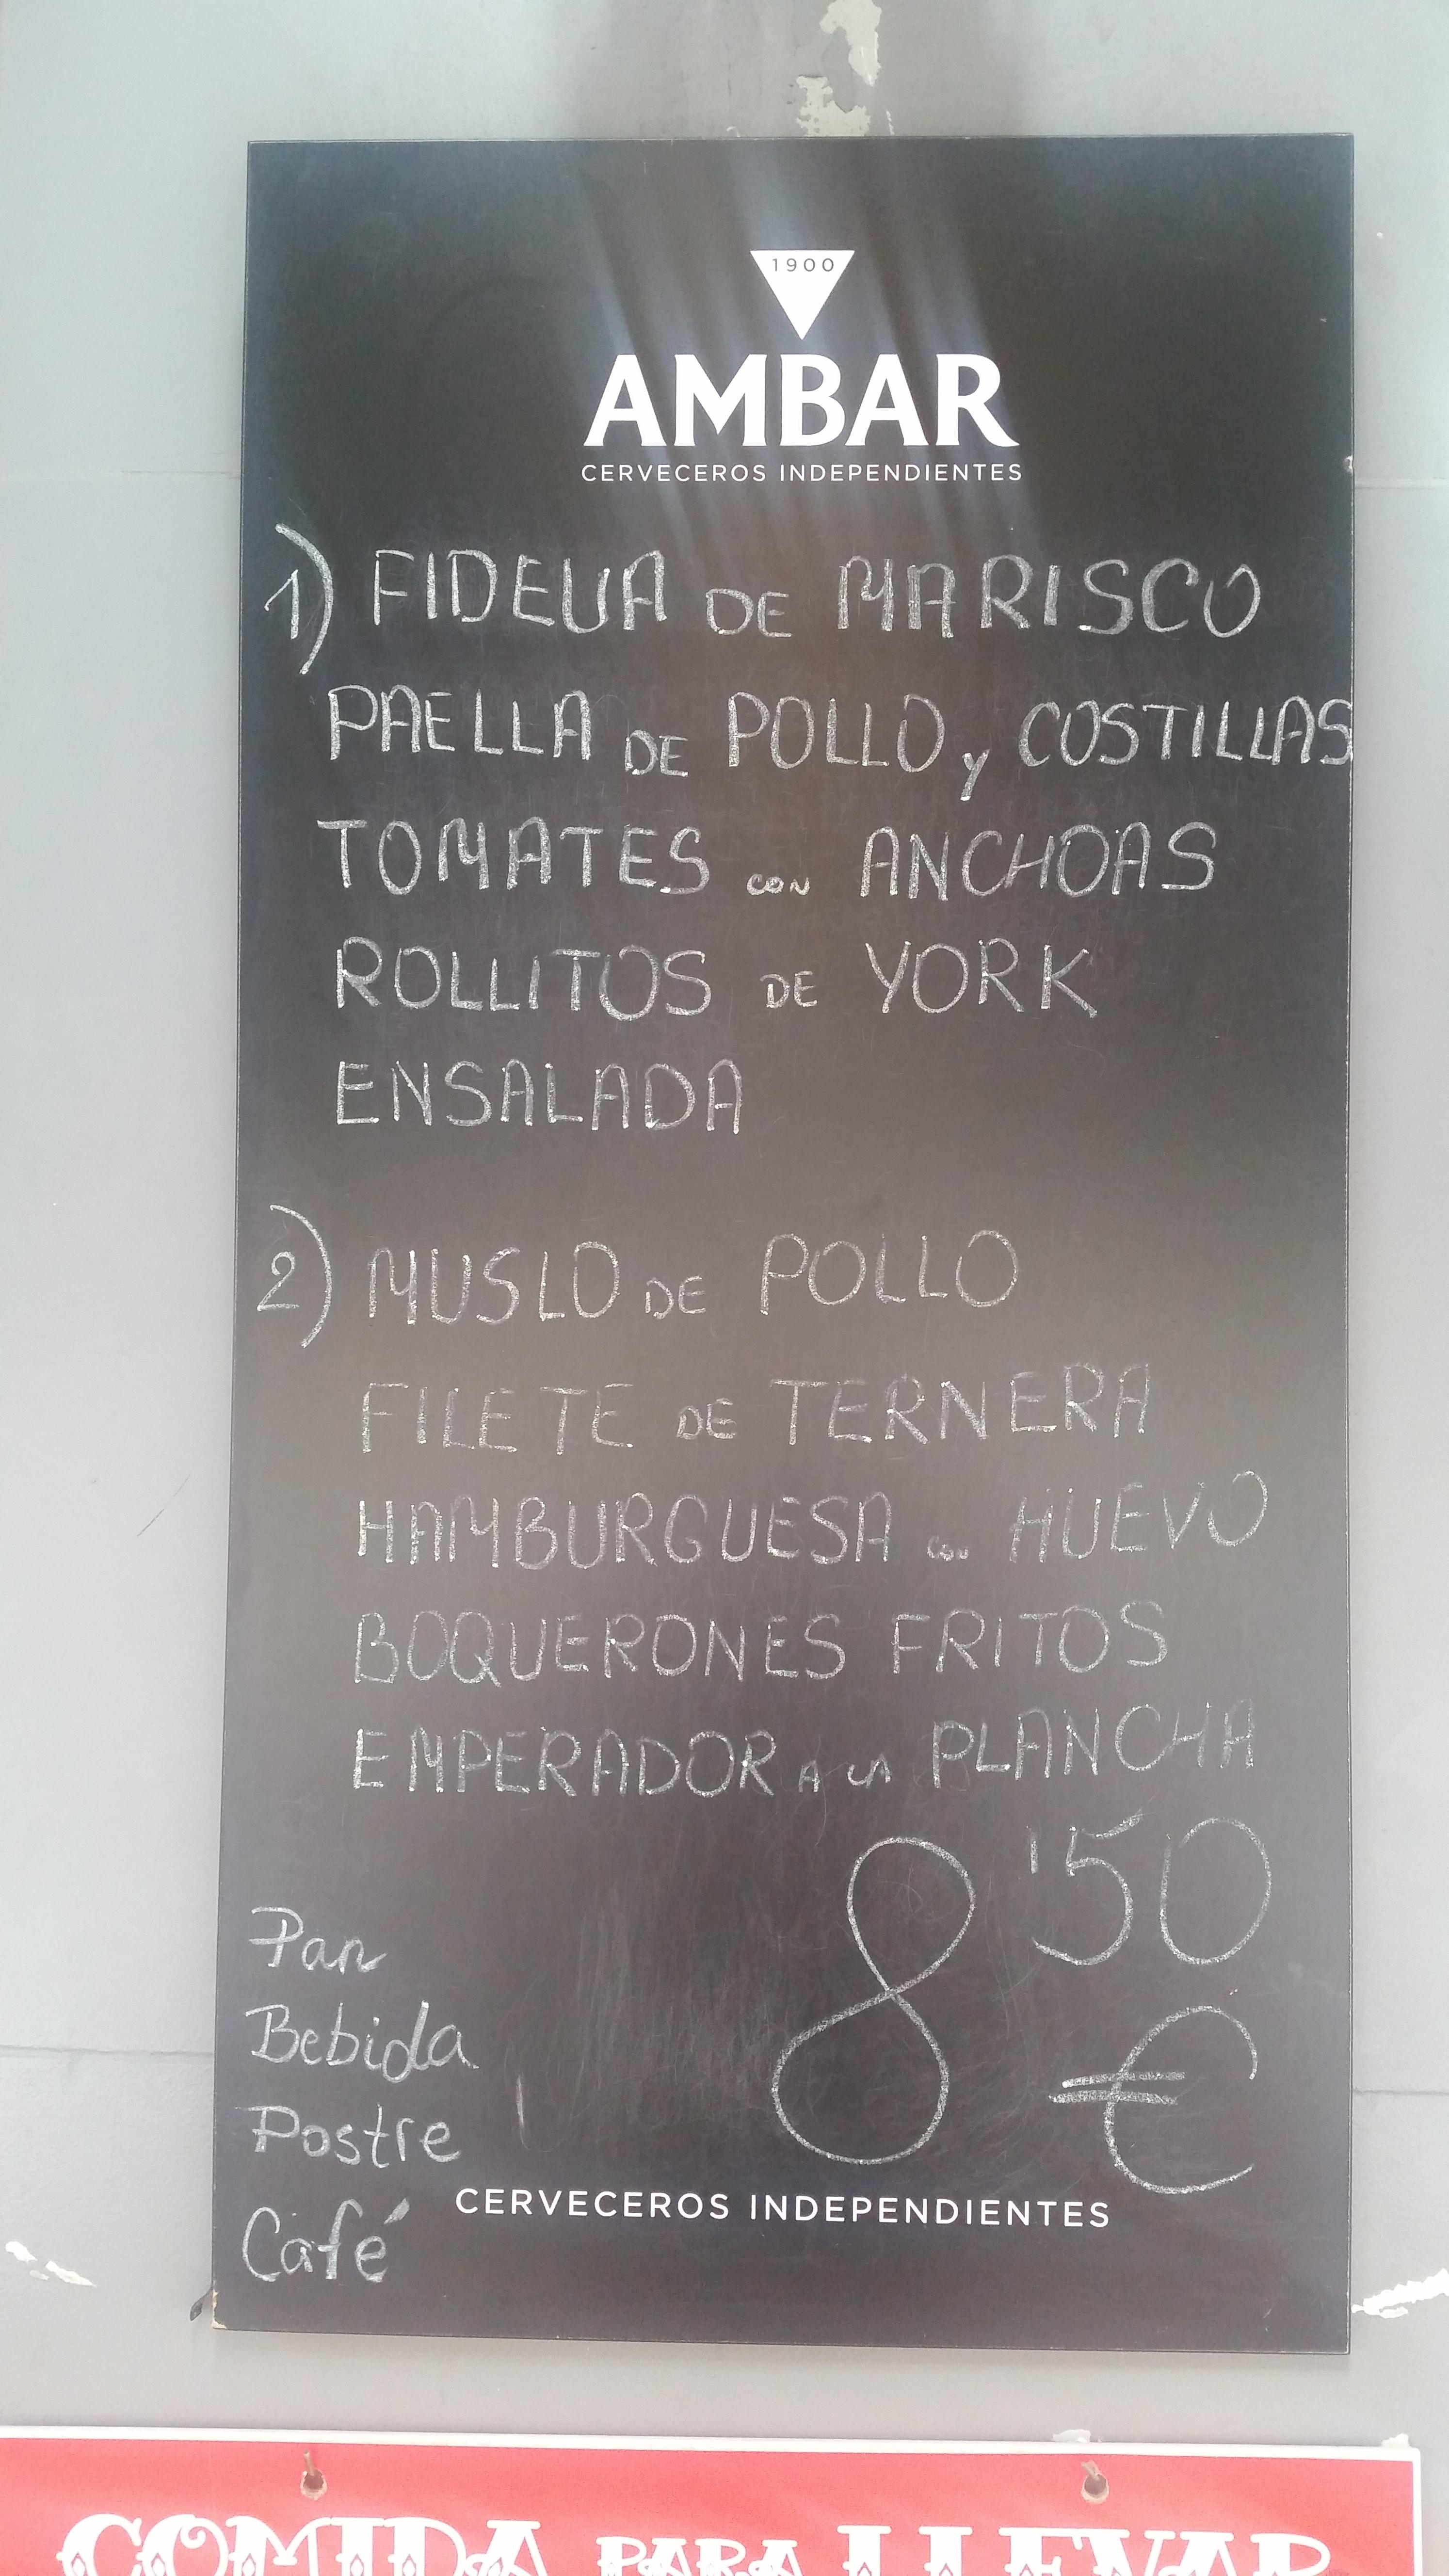 1900
AMBAR
CERVECEROS INDEPENDIENTES
1) FIDEUA DE MARISCO
PAELLA DE POLLO y COSTILLAS
TOMATES CON ANCHOAS
ROLLITOS DE YORK
ENSALADA
2) MUSLO DE POLLO
FILETE DE TERNERA
HAMBURGUESA CON HUEVO
BOQUERONES FRITOS
EMPERADOR A LA PLANCHA
8'50
€
Pan
Bebida
Postre
Café
CERVECEROS INDEPENDIENTES
COMIDA PARA LLEVAR